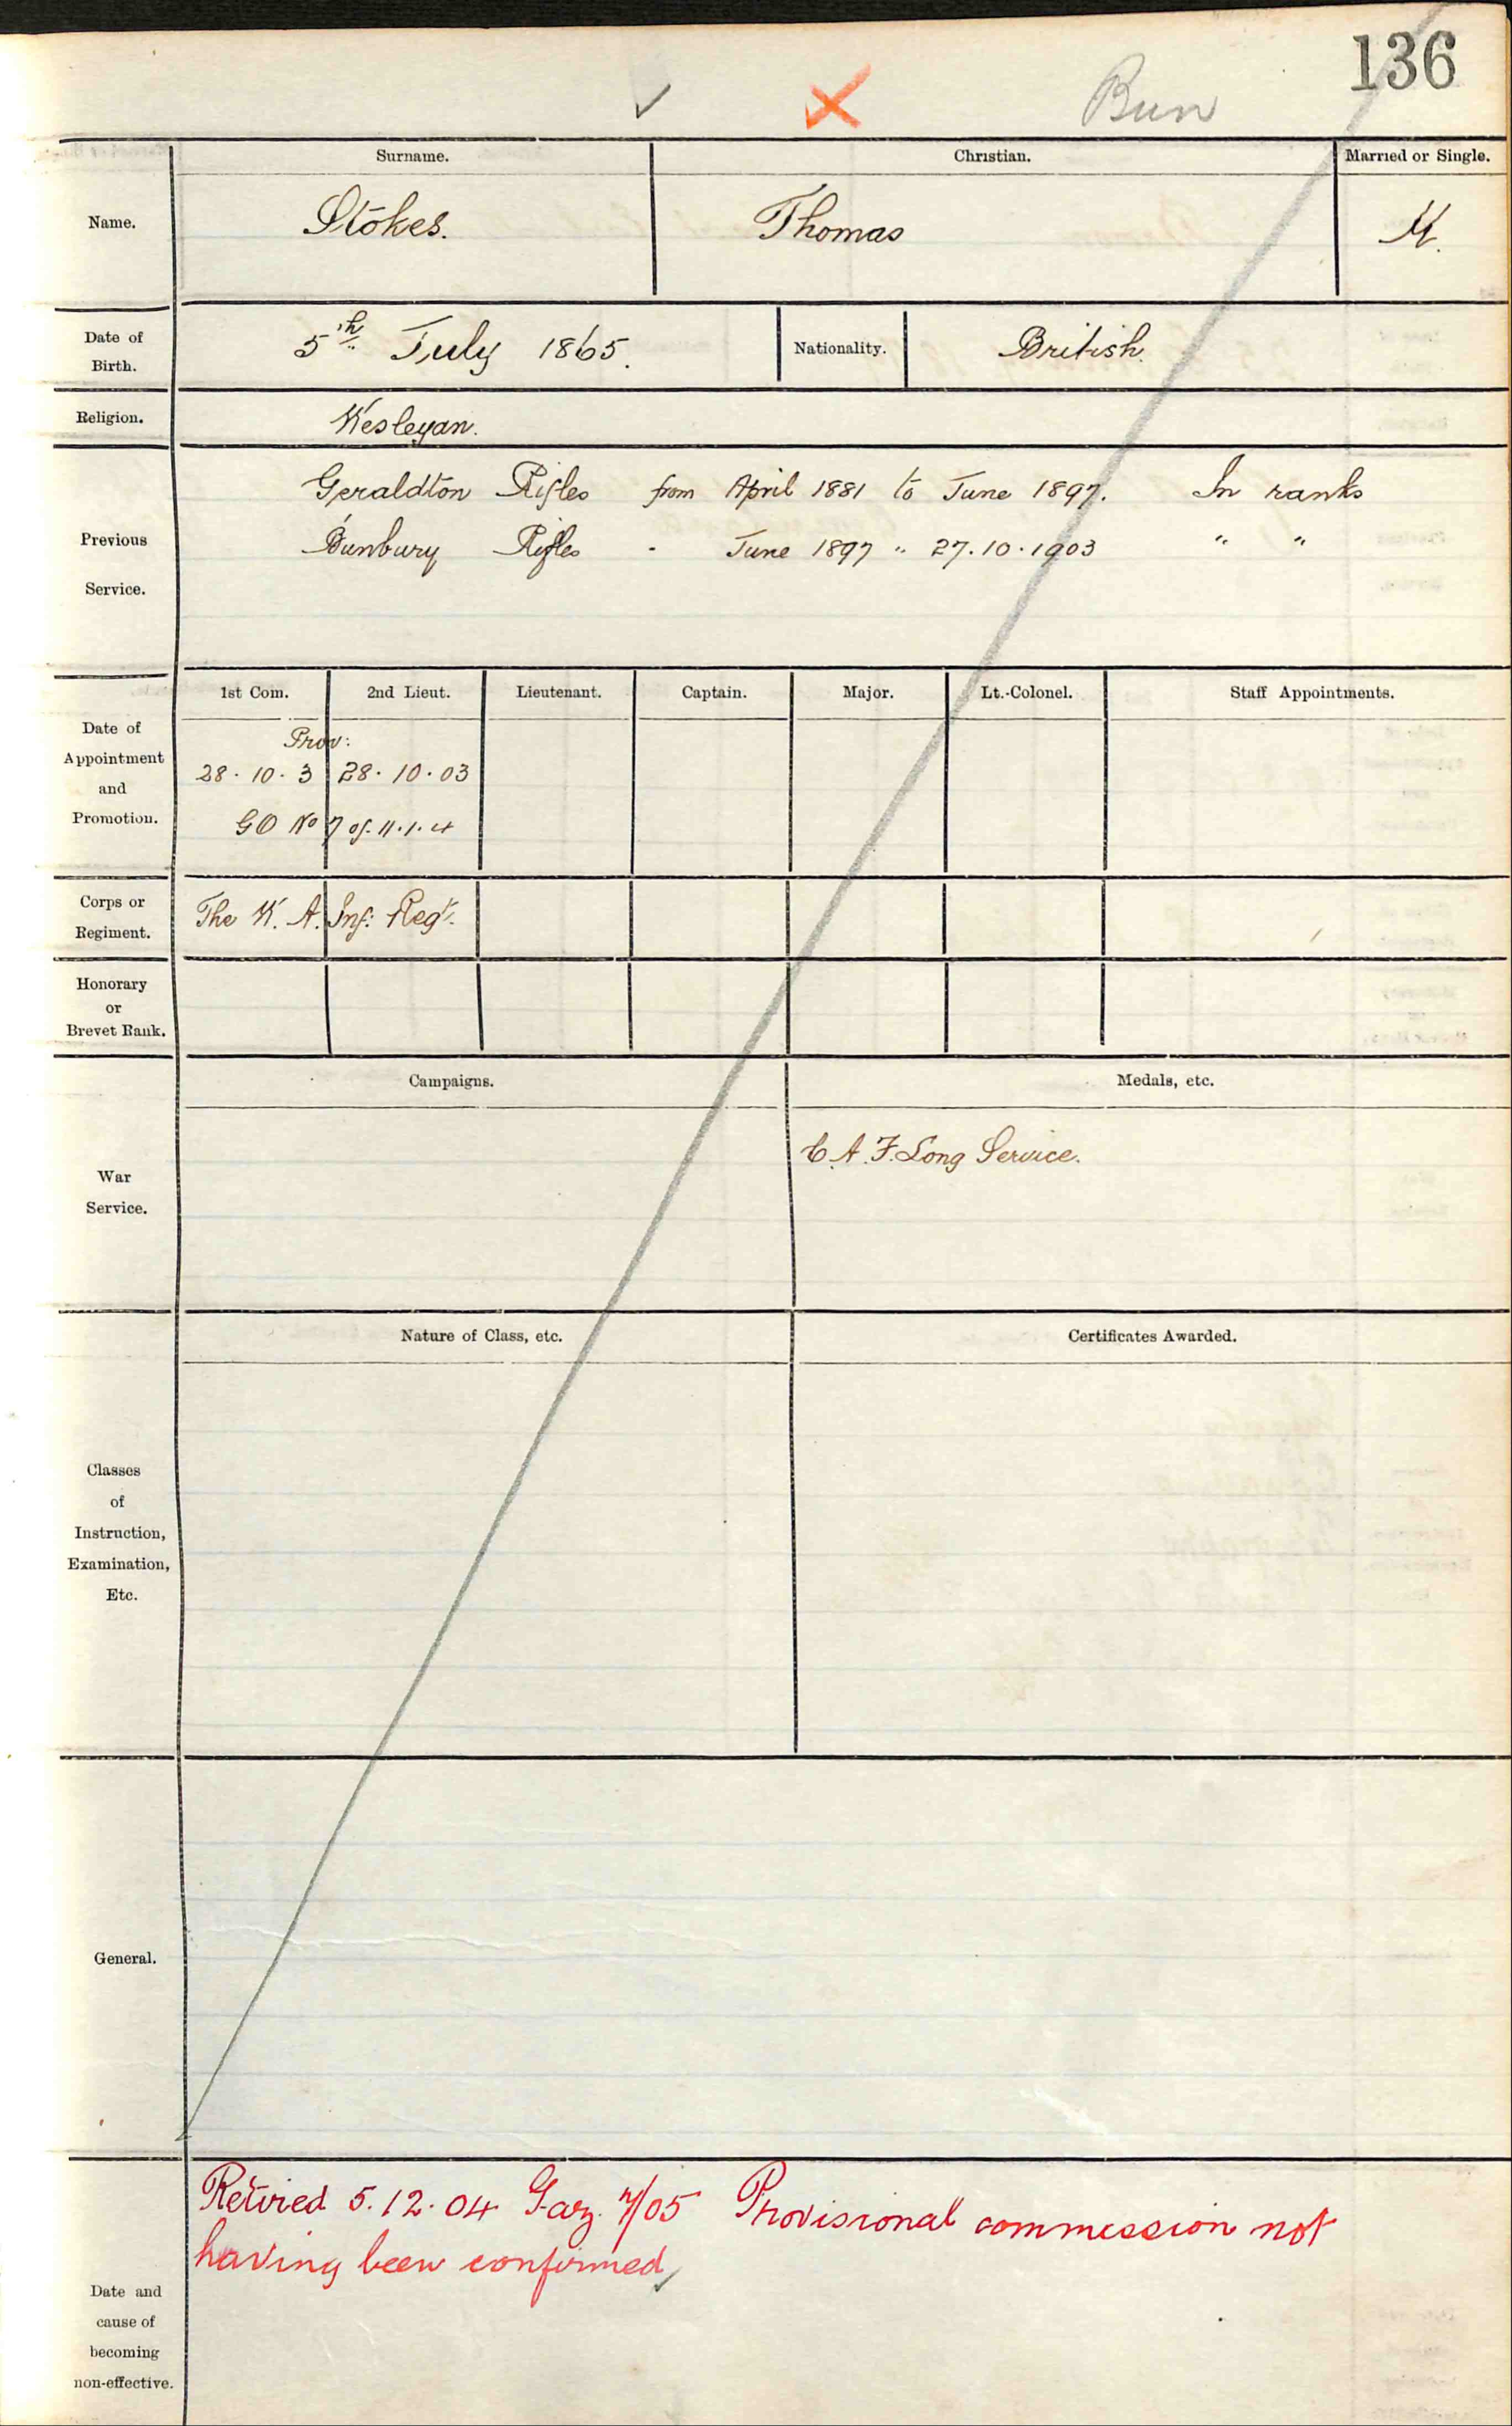 136
Bun
Surname. Christian. Married or Single.
Name. Stokes. Thomas M.
Date of Birth. 5th July 1865. Nationality. British.
Religion. Wesleyan.
Geraldton Rifles from April 1881 to June 1897. In ranks
Previous Service.
Bunbury Rifles " June 1897 " 27.10.1903 " "
1st Com. 2nd Lieut. Lieutenant. Captain. Major. Lt.-Colonel. Staff Appointments.
Date of Appointment and Promotion.
Prov:
28. 10. 3 28. 10. 03
GO No 7 of 11.1.4
Corps or Regiment. The W. A. Inf: Regt.
Honorary or Brevet Rank.
Campaigns. Medals, etc.
War Service. C.A.F. Long Service.
Nature of Class, etc. Certificates Awarded.
Classes
of
Instruction,
Examination,
Etc.
General.
Retired 5.12.04 Gaz. 7/05 Provisional commission not
having been confirmed
Date and
cause of
becoming
non-effective.